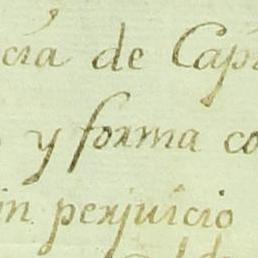 cía de Cap
y forma co
in perjuicio